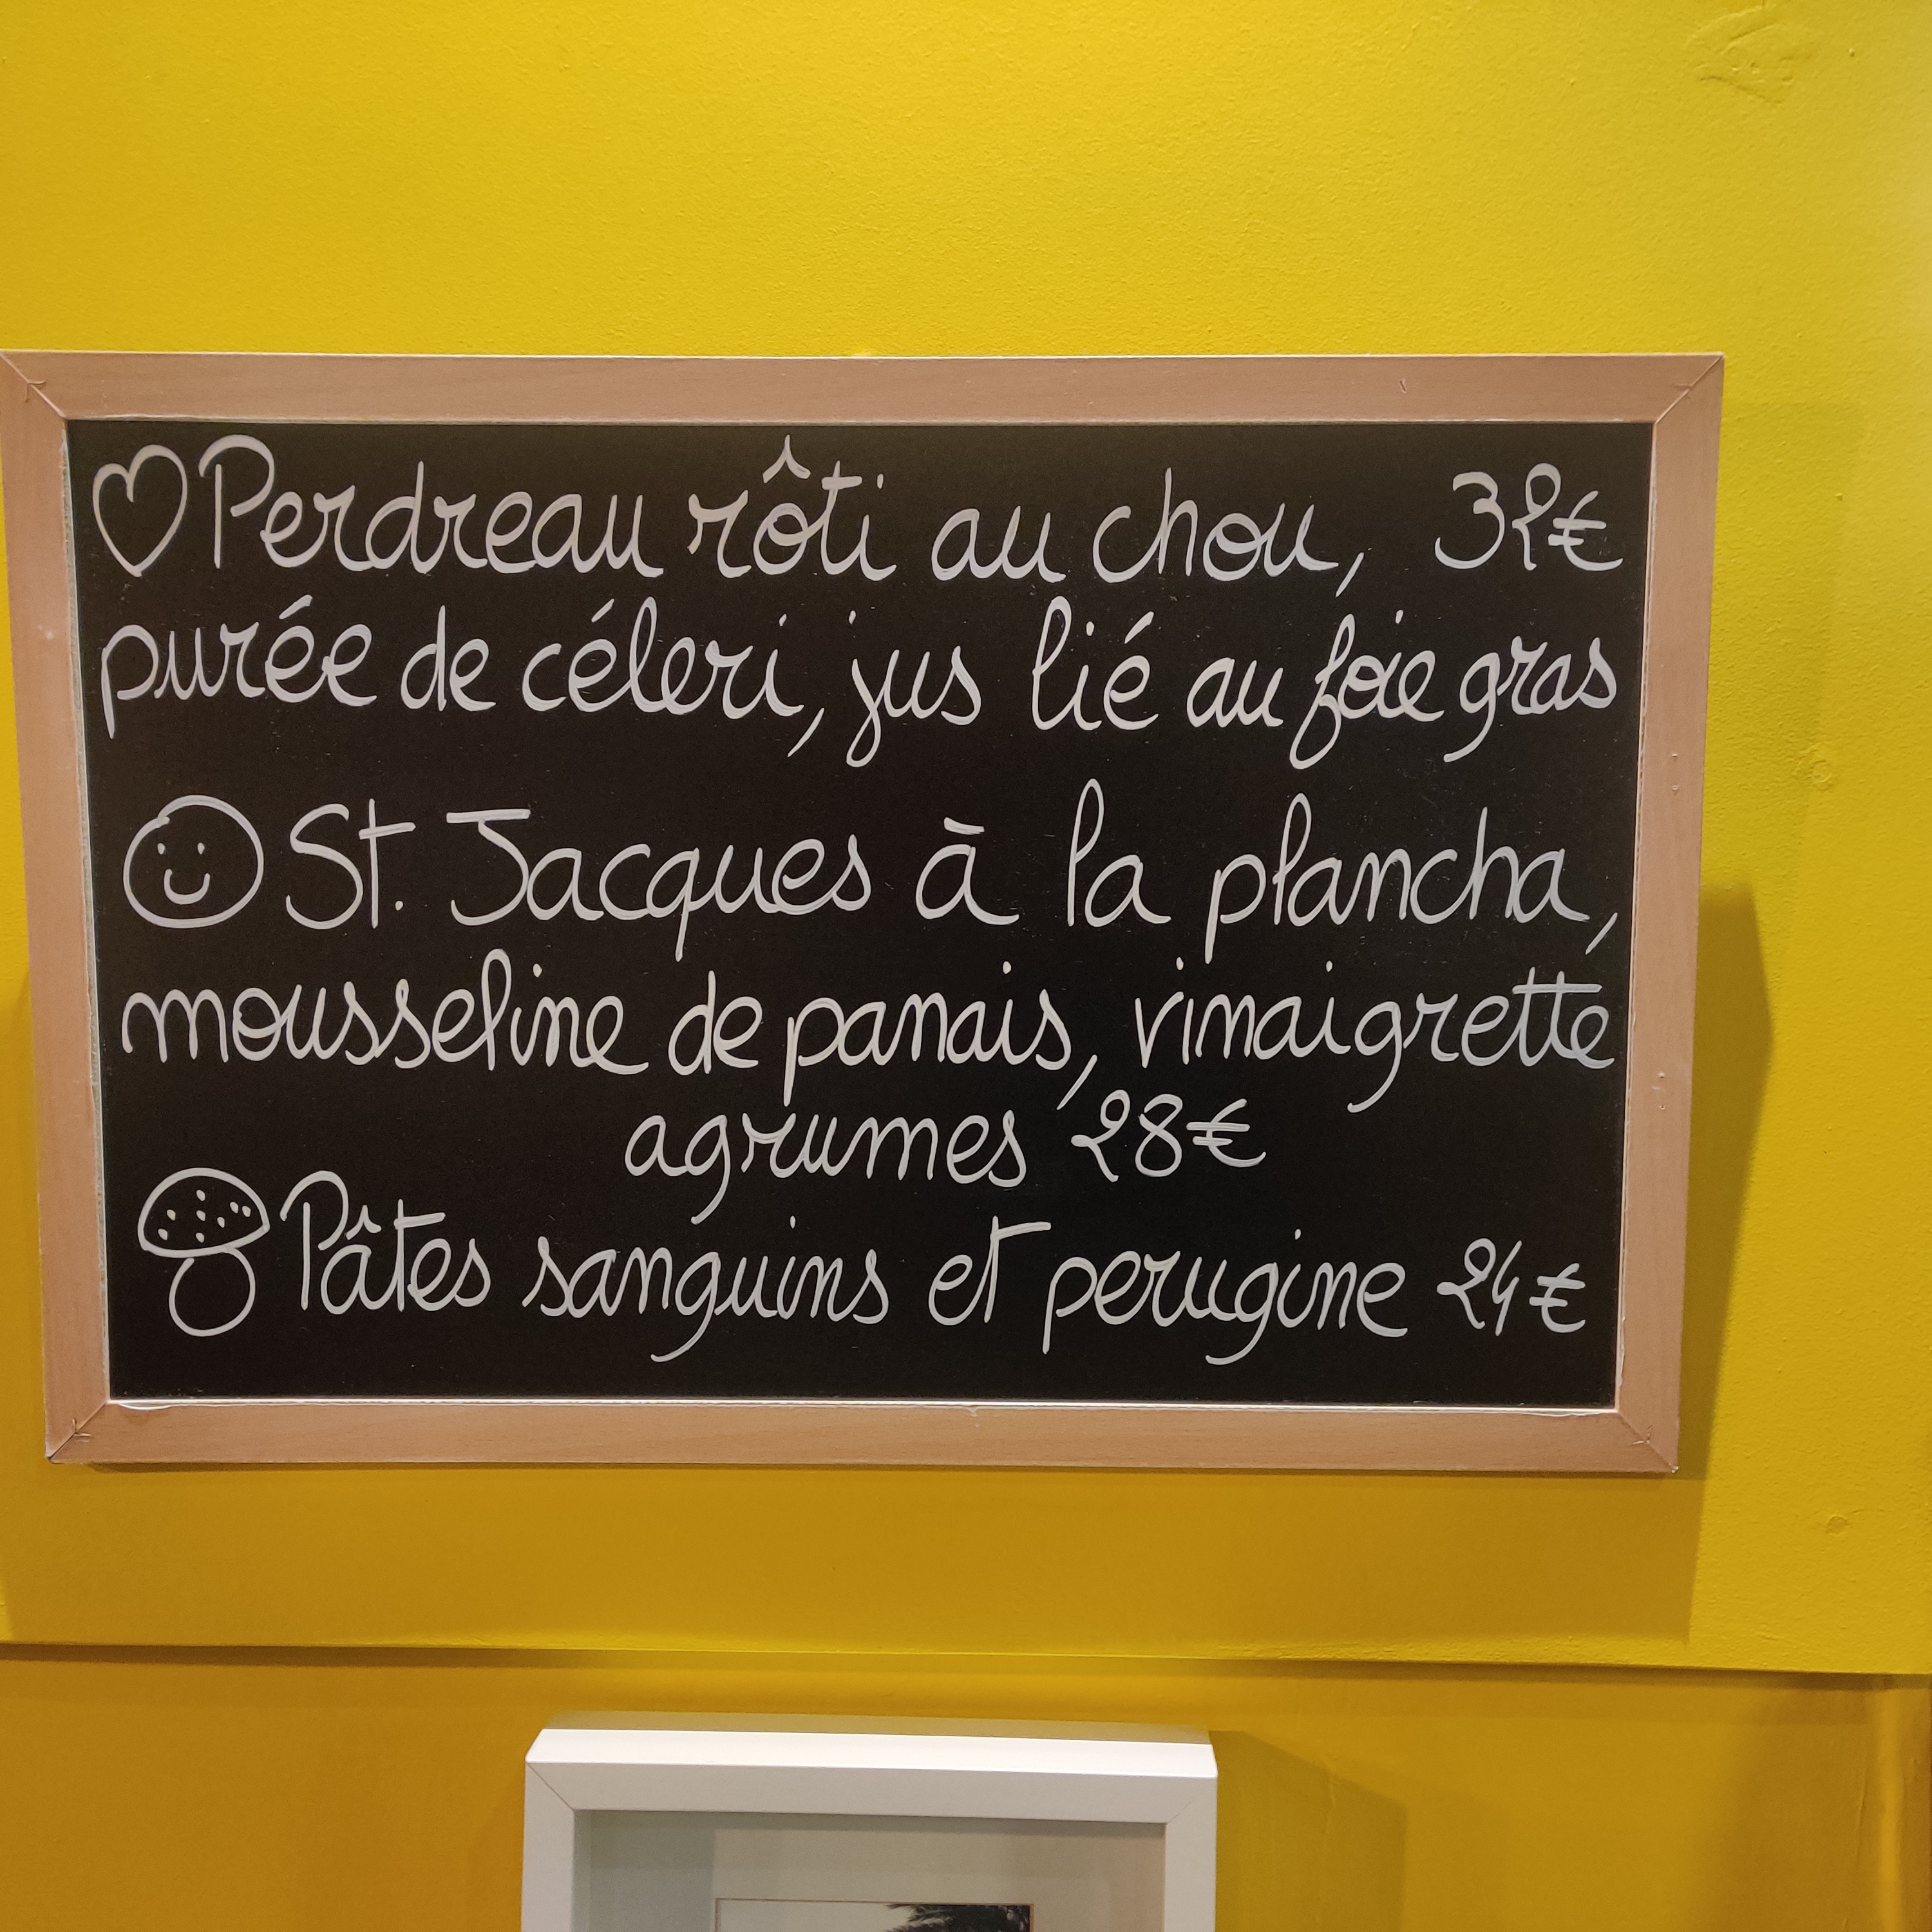 Perdreau rôti au chou, 32€
purée de céleri, jus lié au foie gras
St. Jacques à la plancha,
mousseline de panais, vinaigrette
agrumes 28€
Pâtes sanguins et perugine 24€